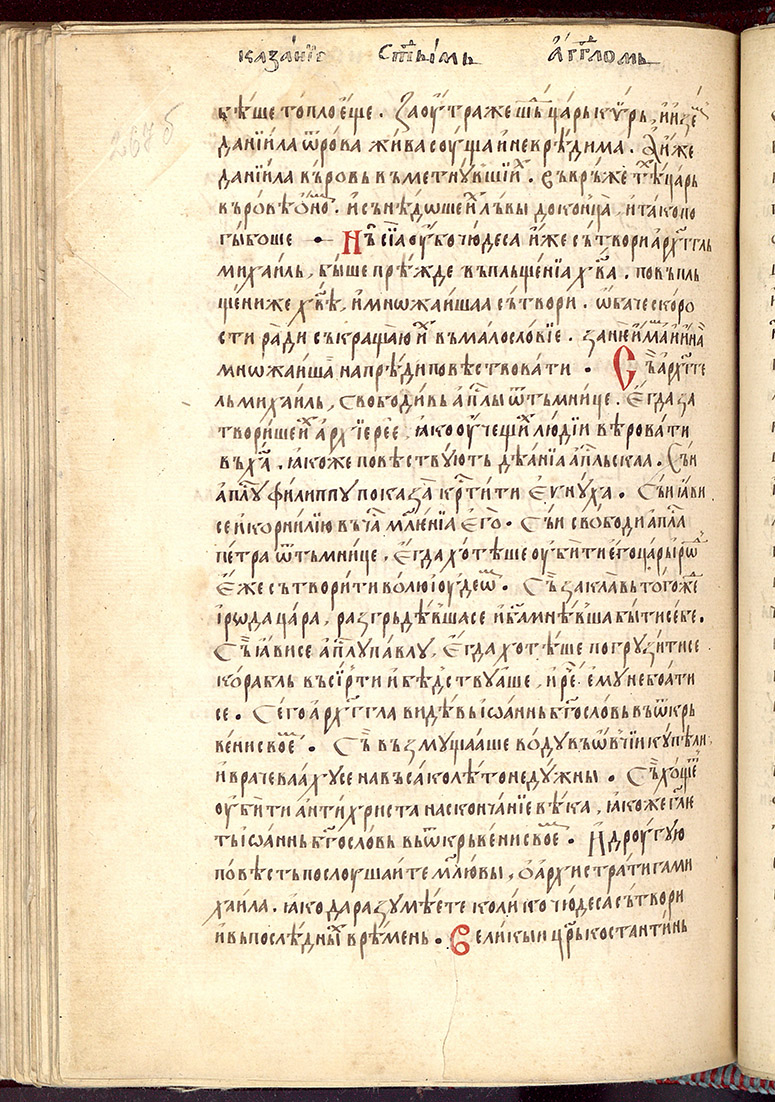 казанїе ст҃ы́имь а҆гг҃ломь
267 б
бѣ́ше то́пло е҆́ще . Заоу҆́тра же шъ́дь ца́рь кѵ́рь , и҆ и҆зе́
данїи́ла ѿ ро́ва жи́ва соу́ща и҆ невре́дима . А҆ и҆́же
данїи́ла въ ро́вь въметну́вшїих . съврь́же тѣ́х ца́рь
въ ро́вь ѻ҆́нь . и҆ сънѣдо́ше и҆х льви до конца̀ , и҆ та́ко по
гы́боше • Нѡ сїа̀ оу҆́бо чю́деса и҆́же сътворѝ а҆рхаг҃гль
миха́иль , бы́ше прѣ́жде въплъще́нїа х҃ва . по въпль
щени́и же х҃вѣ , и҆ мнѡжа́ишаа сътворѝ . ѡ҆ба́че ско́ро
сти ра́ди съкраща́ю и҆х въ малосло́вїе . за нѐ и҆́мам и҆ и҆на̀
мнѡжа́ишаа напрѣ́ди повѣ́ствовати • Съ а҆рхаг҃ге
ль миха́иль , свободи́вь а҆пⷭ҇лы ѿ тъмни́це . Е҆гда̀ за
твори́ше и҆х а҆рхїере́е , ꙗ҆ко оу҆че́щих лю́дїи вѣ́ровати
въ х҃а̀ , ꙗ҆ко же повѣ́ствують дѣа́нїа а҆пⷭ҇льскаа . Съи
а҆пⷭ҇лу фили́ппу показа̀ крⷭ҇ти́ти е҆ѵну́ха . Съи ꙗ҆ви
се и҆ корни́лїю въ ча́с мл҃е́нїа е҆го̀ . Съи свободѝ а҆пⷭ҇ла
пе́тра ѿ тъмни́це , Е҆гда̀ хотѣ́ше оу҆би́ти е҆го̀ ца́рь и҆рѡ́д
Е҆́же сътвори́ти во́лю і҆оуде́ѡм . Съ закла́вь того́же
і҆́рѡда ца́ра , разгрьдѣ́вша се и҆ б҃а мнѣ́вша бы́ти себе .
Съ ꙗ҆ви се а҆пⷭ҇лу па́влу , Е҆гда̀ хотѣ́ше погрузи́ти се
кора́бль въ сїрти и҆ бѣ́дствуаше , и҆ рѐⷱ҇ е҆му не бо́ати
се . Сего̀ а҆рхаг҃гла ви́дѣвь і҆ѡа́ннь бг҃осло́вь въ ѿкрь
ве́ни свое́м . Съ възмуща́аше во́ду въ ѻ҆́вчїи купѣ́ли ,
и҆ врачева́аху се на въ́сако лѣ́то неду́жны . Съ хо́щет
оу҆би́ти а҆нти́христа на сконча́нїе вѣ́ка , ꙗ҆ко же гл҃е
ть і҆ѡа́ннь бг҃осло́вь въ ѿкрьве́ни свое́м . И҆ дроугу́ю
по́вѣсть послоу́шаите мл҃ю вы , ѻ҆ а҆рхистрати́га ми
ха́ила . ꙗ҆ко да разумѣ́ете коли́ко чю́деса сътворѝ
и҆ въ послѣ́дных врѣ́мень . Вели́кыи цр҃ь костанти́нь